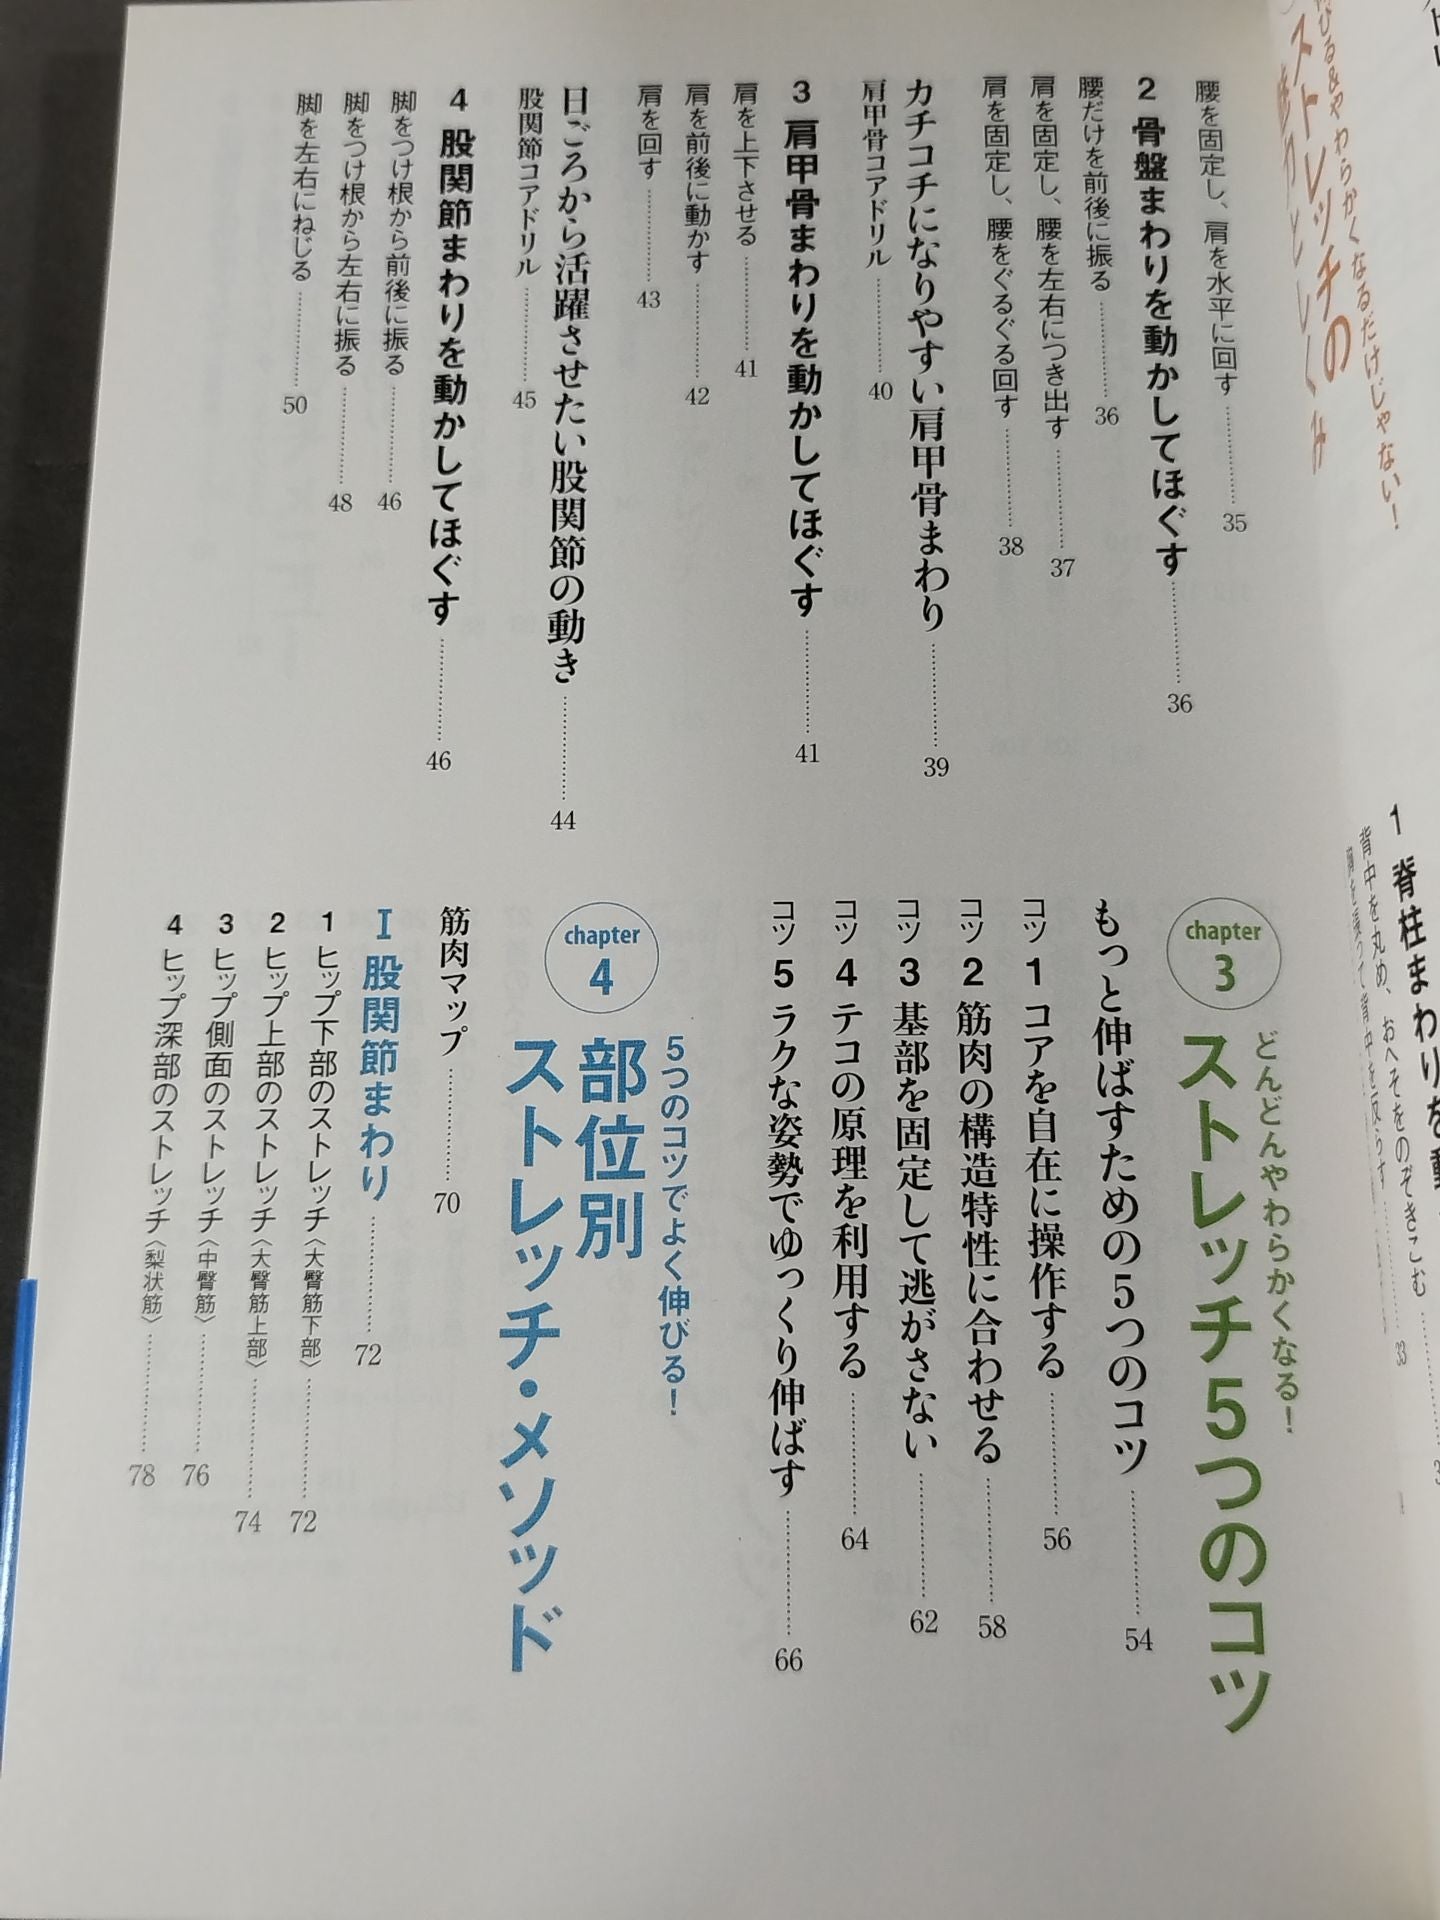 ストレッチの
1 脊柱まわりを動
背中を丸め、おへそをのぞきこむ
33
腰を固定し、肩を水平に回す 35
2 骨盤まわりを動かしてほぐす 36
腰だけを前後に振る 36
肩を固定し、腰を左右につき出す 37
肩を固定し、腰をぐるぐる回す 38
カチコチになりやすい肩甲骨まわり 39
肩甲骨コアドリル 40
3 肩甲骨まわりを動かしてほぐす 41
肩を上下させる 41
肩を前後に動かす 42
肩を回す 43
日ごろから活躍させたい股関節の動き 44
股関節コアドリル 45
4 股関節まわりを動かしてほぐす 46
脚をつけ根から前後に振る 46
脚をつけ根から左右に振る 48
脚を左右にねじる 50
chapter 3
どんどんやわらかくなる!
ストレッチ5つのコツ
もっと伸ばすための5つのコツ 54
コツ1 コアを自在に操作する 56
コツ2 筋肉の構造特性に合わせる 58
コツ3 基部を固定して逃がさない 62
コツ4 テコの原理を利用する 64
コツ5 ラクな姿勢でゆっくり伸ばす 66
chapter 4
5つのコツでよく伸びる!
部位別
ストレッチ・メソッド
筋肉マップ 70
I 股関節まわり 72
1 ヒップ下部のストレッチ〈大臀筋下部〉 72
2 ヒップ上部のストレッチ〈大臀筋上部〉 74
3 ヒップ側面のストレッチ〈中臀筋〉 76
4 ヒップ深部のストレッチ〈梨状筋〉 78